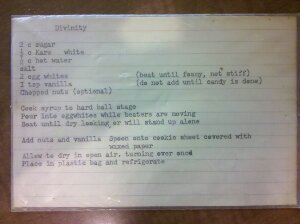 Divinity
2 c sugar
½ c Karo white
½ c hot water
salt
2 egg whites (beat until foamy, not stiff)
1 tsp vanilla (do not add until candy is done)
Chopped nuts (optional)
Cook syrup to hard ball stage
Pour into eggwhites while beaters are moving
Beat until dry looking or will stand up alone
Add nuts and vanilla Spoon onto cookie sheet covered with
waxed paper
Allow to dry in open air, turning over once
Place in plastic bag and refrigerate